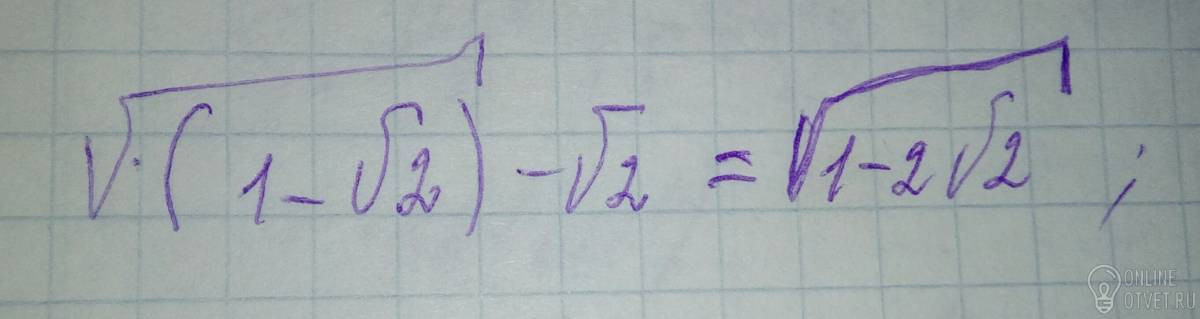 √·(1-√2) - √2 = √1-2√2 ;
ONLINE
OTVET.RU